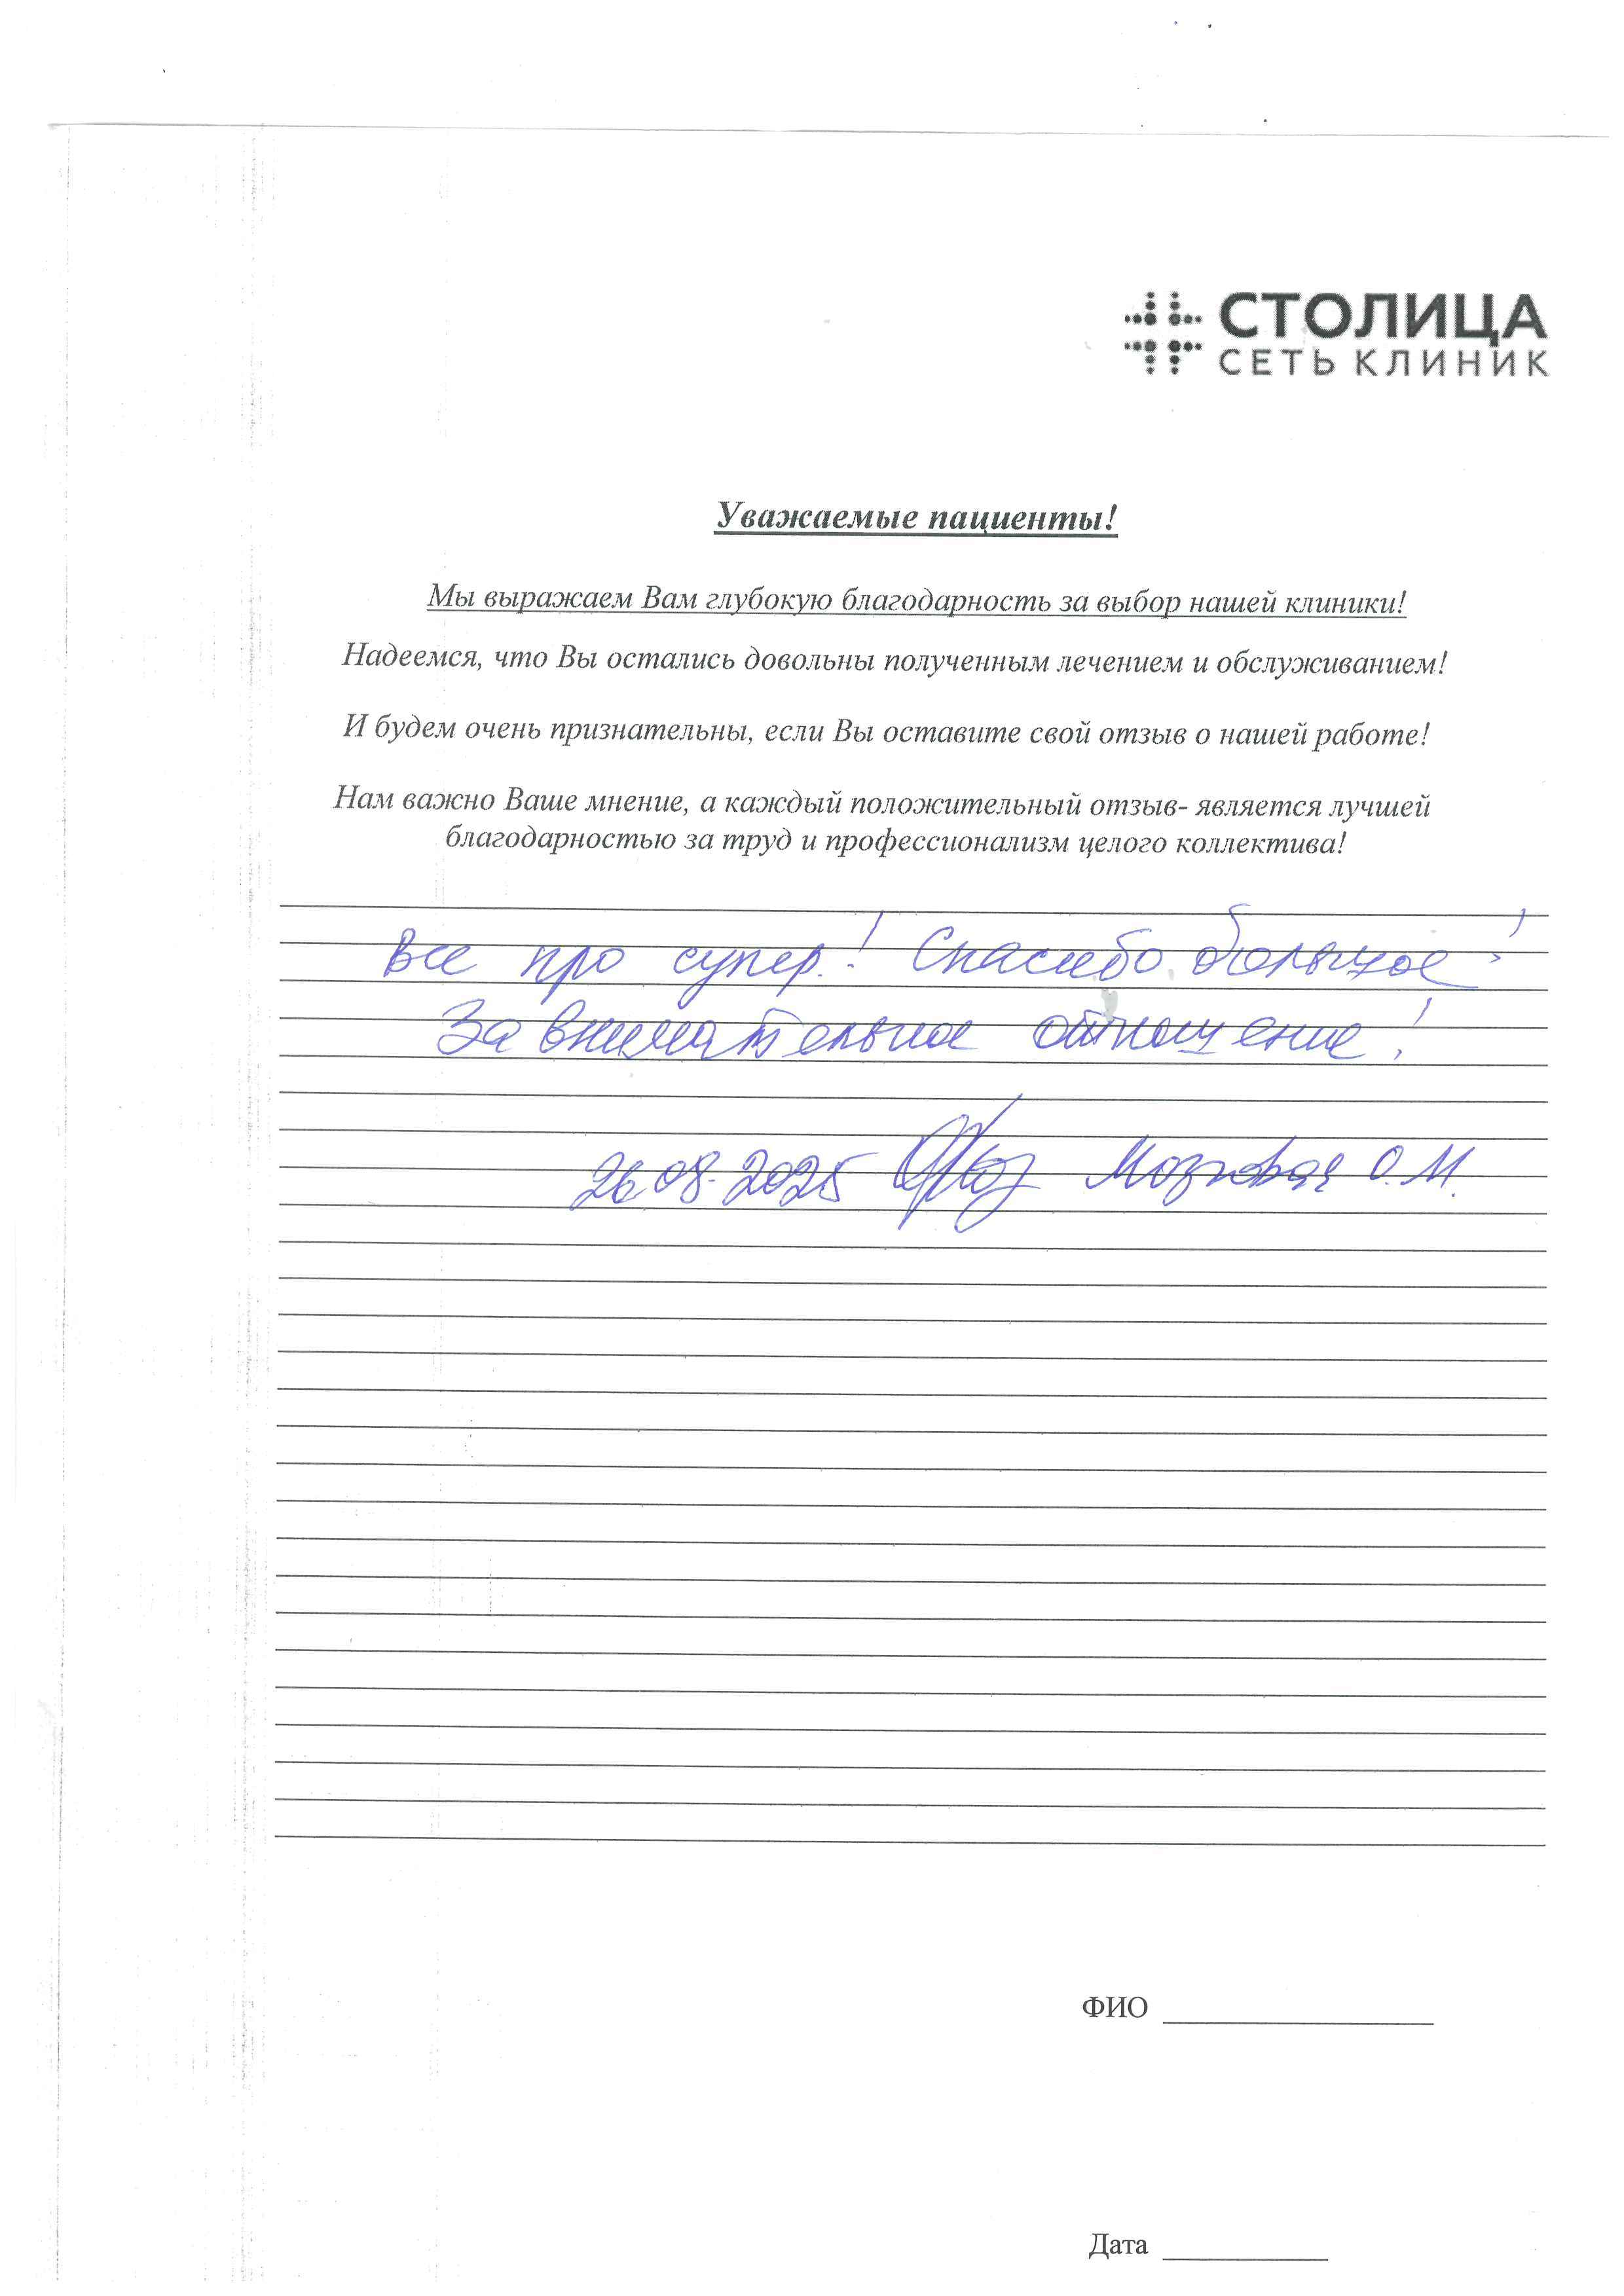 СТОЛИЦА
СЕТЬ КЛИНИК
Уважаемые пациенты!
Мы выражаем Вам глубокую благодарность за выбор нашей клиники!
Надеемся, что Вы остались довольны полученным лечением и обслуживанием!
И будем очень признательны, если Вы оставите свой отзыв о нашей работе!
Нам важно Ваше мнение, а каждый положительный отзыв- является лучшей
благодарностью за труд и профессионализм целого коллектива!
Все про супер! Спасибо большое!
За внимательное отношение!
26.08.2025 О.М.
ФИО
Дата